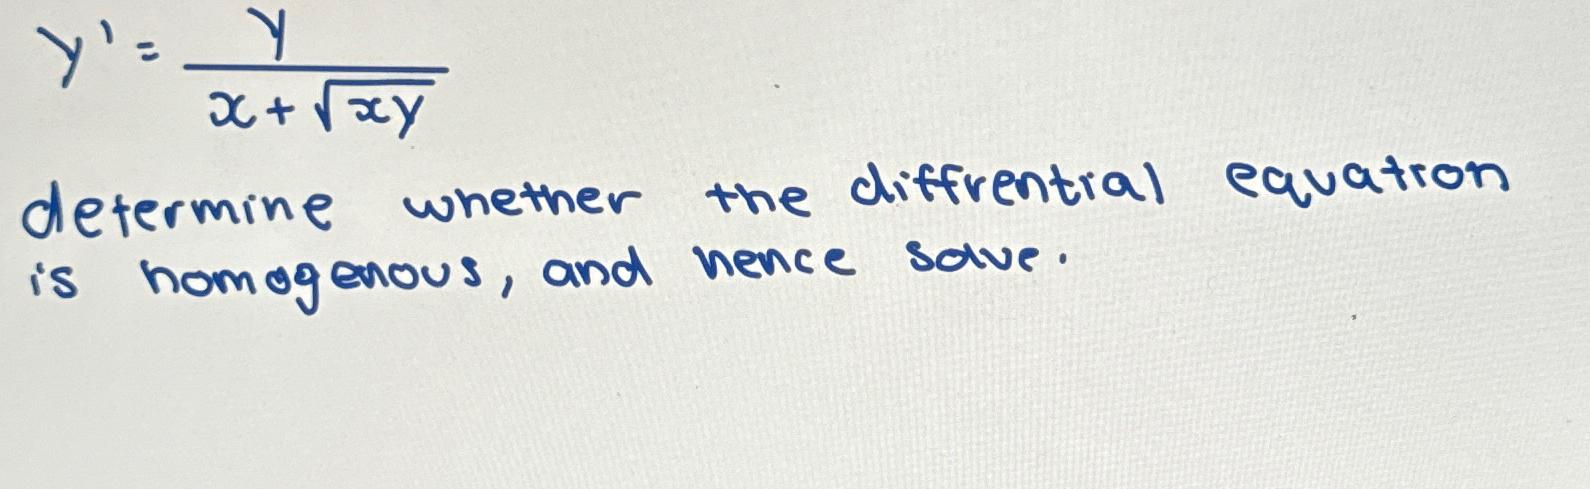 y' = y / (x + √xy)
determine whether the diffrential equation
is homogenous, and hence solve.